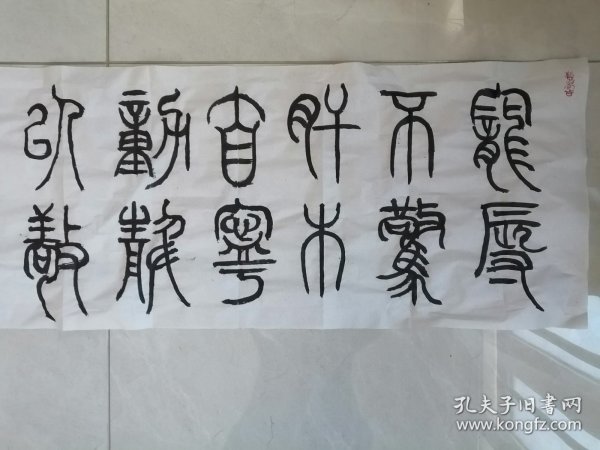 寵辱
不驚
肝木
自寧
動靜
以敬
孔夫子旧书网
www.kongfz.com